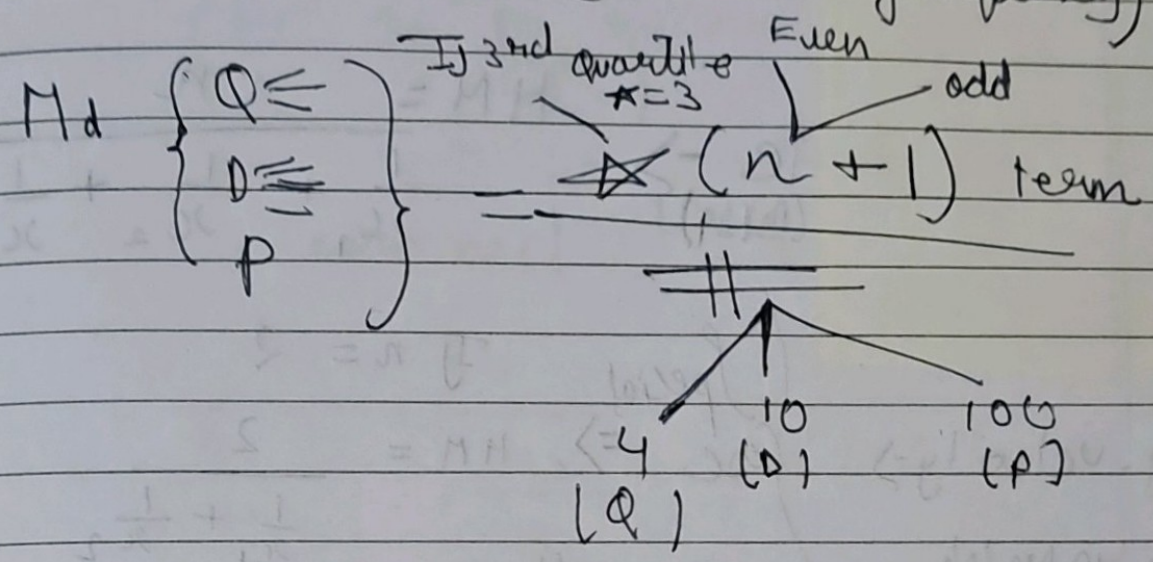 If 3rd Quartile Even
★=3 odd
Md { Q
D
P } = ★ (n + 1) term
#
4 10 100
(Q) (D) (P)